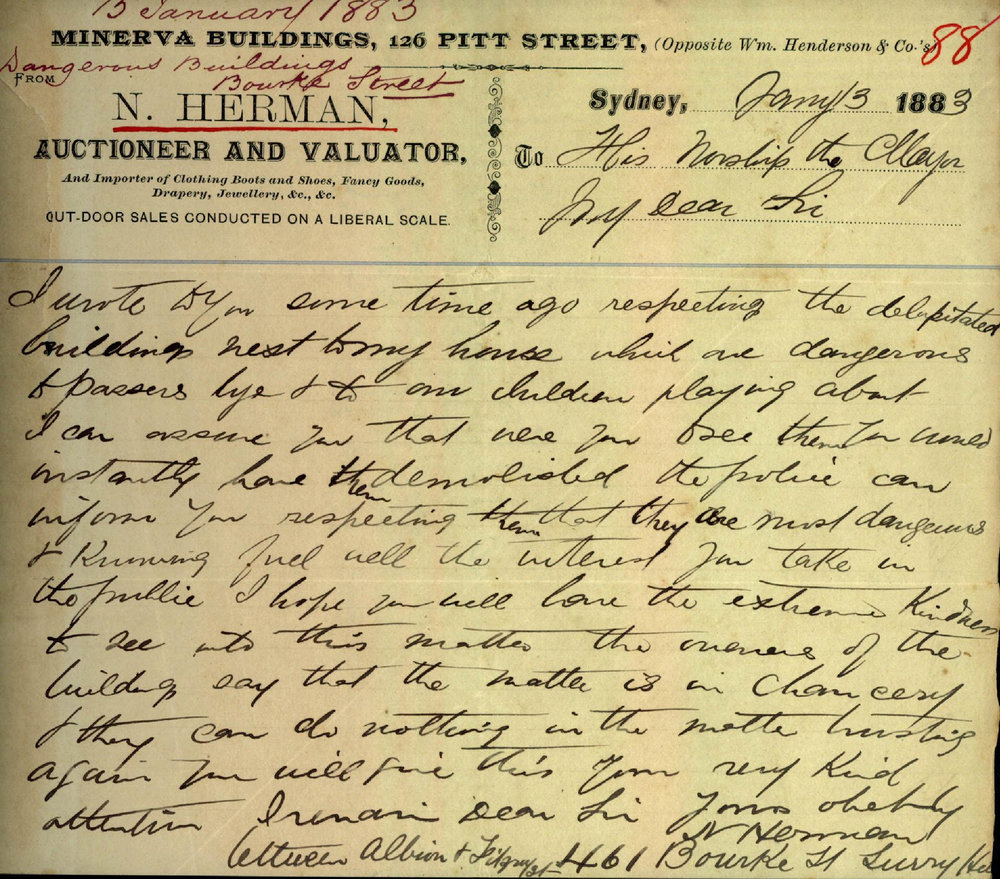 13 January 1883
MINERVA BUILDINGS, 126 PITT STREET, (Opposite Wm. Henderson & Co.'s)
88
Dangerous Buildings
Bourke Street
FROM
N. HERMAN,
AUCTIONEER AND VALUATOR,
And Importer of Clothing Boots and Shoes, Fancy Goods,
Drapery, Jewellery, &c., &c.
OUT-DOOR SALES CONDUCTED ON A LIBERAL SCALE.
Sydney, Jany 13 1883
To His Worship the Mayor
My Dear Sir
I wrote to you some time ago respecting the delapitated
buildings next to my house which are dangerous
to passers bye & to our children playing about
I can assure you that were you to see them you would
instantly have them demolished the police can
inform you respecting them that they are most dangerous
& Knowing fuel well the interest you take in
the public I hope you will have the extreme Kindness
to see into this matter the owners of the
buildings say that the matter is in Chancery
& they can do nothing in the matter trusting
again you will give this your very Kind
attention I remain Dear Sir Yours obediently
N Herman
between Albion & Fitzroy St 461 Bourke St Surry Hill